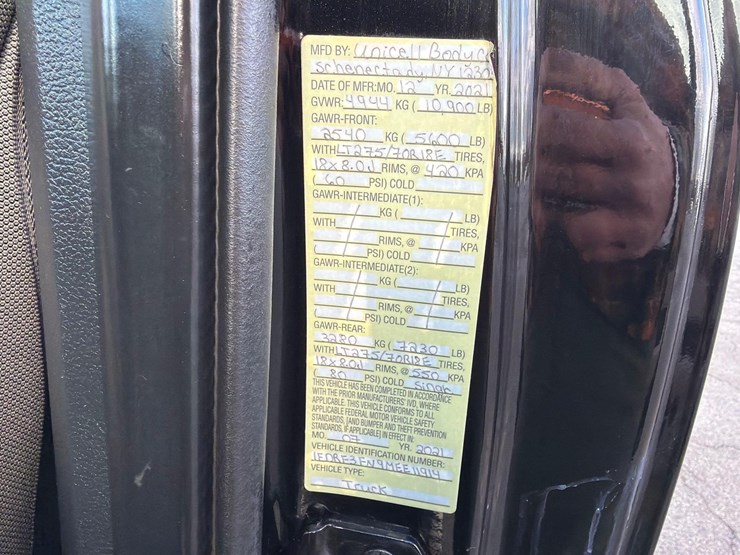 MFD BY: Unicell Body Co
Schenectady, NY 1230
DATE OF MFR:MO. 12 YR. 2021
GVWR: 4944 KG ( 10,900 LB)
GAWR-FRONT:
2540 KG ( 5600 LB)
WITH LT275/70R18E TIRES,
18x8.0J RIMS, @ 420 KPA
( 60 PSI) COLD
GAWR-INTERMEDIATE(1):
KG ( LB)
WITH TIRES,
RIMS, @ KPA
( PSI) COLD
GAWR-INTERMEDIATE(2):
KG ( LB)
WITH TIRES,
RIMS, @ KPA
( PSI) COLD
GAWR-REAR:
3280 KG ( 7230 LB)
WITH LT275/70R18E TIRES,
18x8.0J RIMS, @ 550 KPA
( 80 PSI) COLD Single
THIS VEHICLE HAS BEEN COMPLETED IN ACCORDANCE
WITH THE PRIOR MANUFACTURERS' IVD, WHERE
APPLICABLE. THIS VEHICLE CONFORMS TO ALL
APPLICABLE FEDERAL MOTOR VEHICLE SAFETY
STANDARDS, [AND BUMPER AND THEFT PREVENTION
STANDARDS, IF APPLICABLE] IN EFFECT IN:
MO. 07 YR. 2021
VEHICLE IDENTIFICATION NUMBER:
1FDRF3FN9MEE11914
VEHICLE TYPE:
Truck